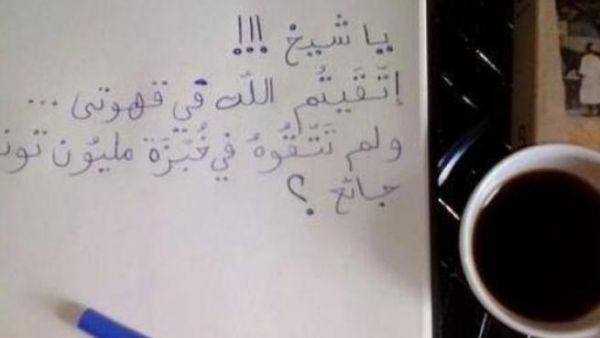 يا شيخ !!!
إتَّقَيتُم اللّه في قهوتي ...
ولم تَتَّقُوهُ في خُبْزَة مليُون
جائع ؟